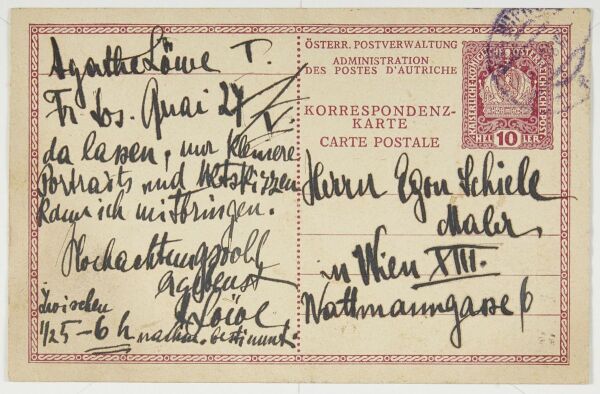 Agathe Löwe T.
Fr. Jos. Quai 27
da lassen, nur kleinere
Portraits und Aktskizzen
kann ich mitbringen.
Hochachtungsvoll
ergebenst
Löwe
Zwischen
1/2 5 – 6 h nachm. bestimmt
ÖSTERR. POSTVERWALTUNG
ADMINISTRATION
DES POSTES D'AUTRICHE
KORRESPONDENZ-
KARTE
CARTE POSTALE
KAISERLICHE KÖNIGLICHE ÖSTERREICHISCHE POST
HEL 10 LER
Herrn Egon Schiele
Maler
in Wien XIII.
Wattmanngasse 6